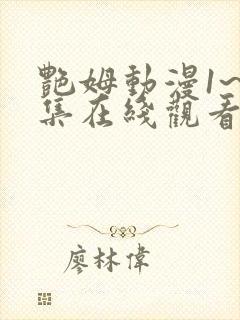 艷姆動漫1~
集在綫觀看
廖林偉